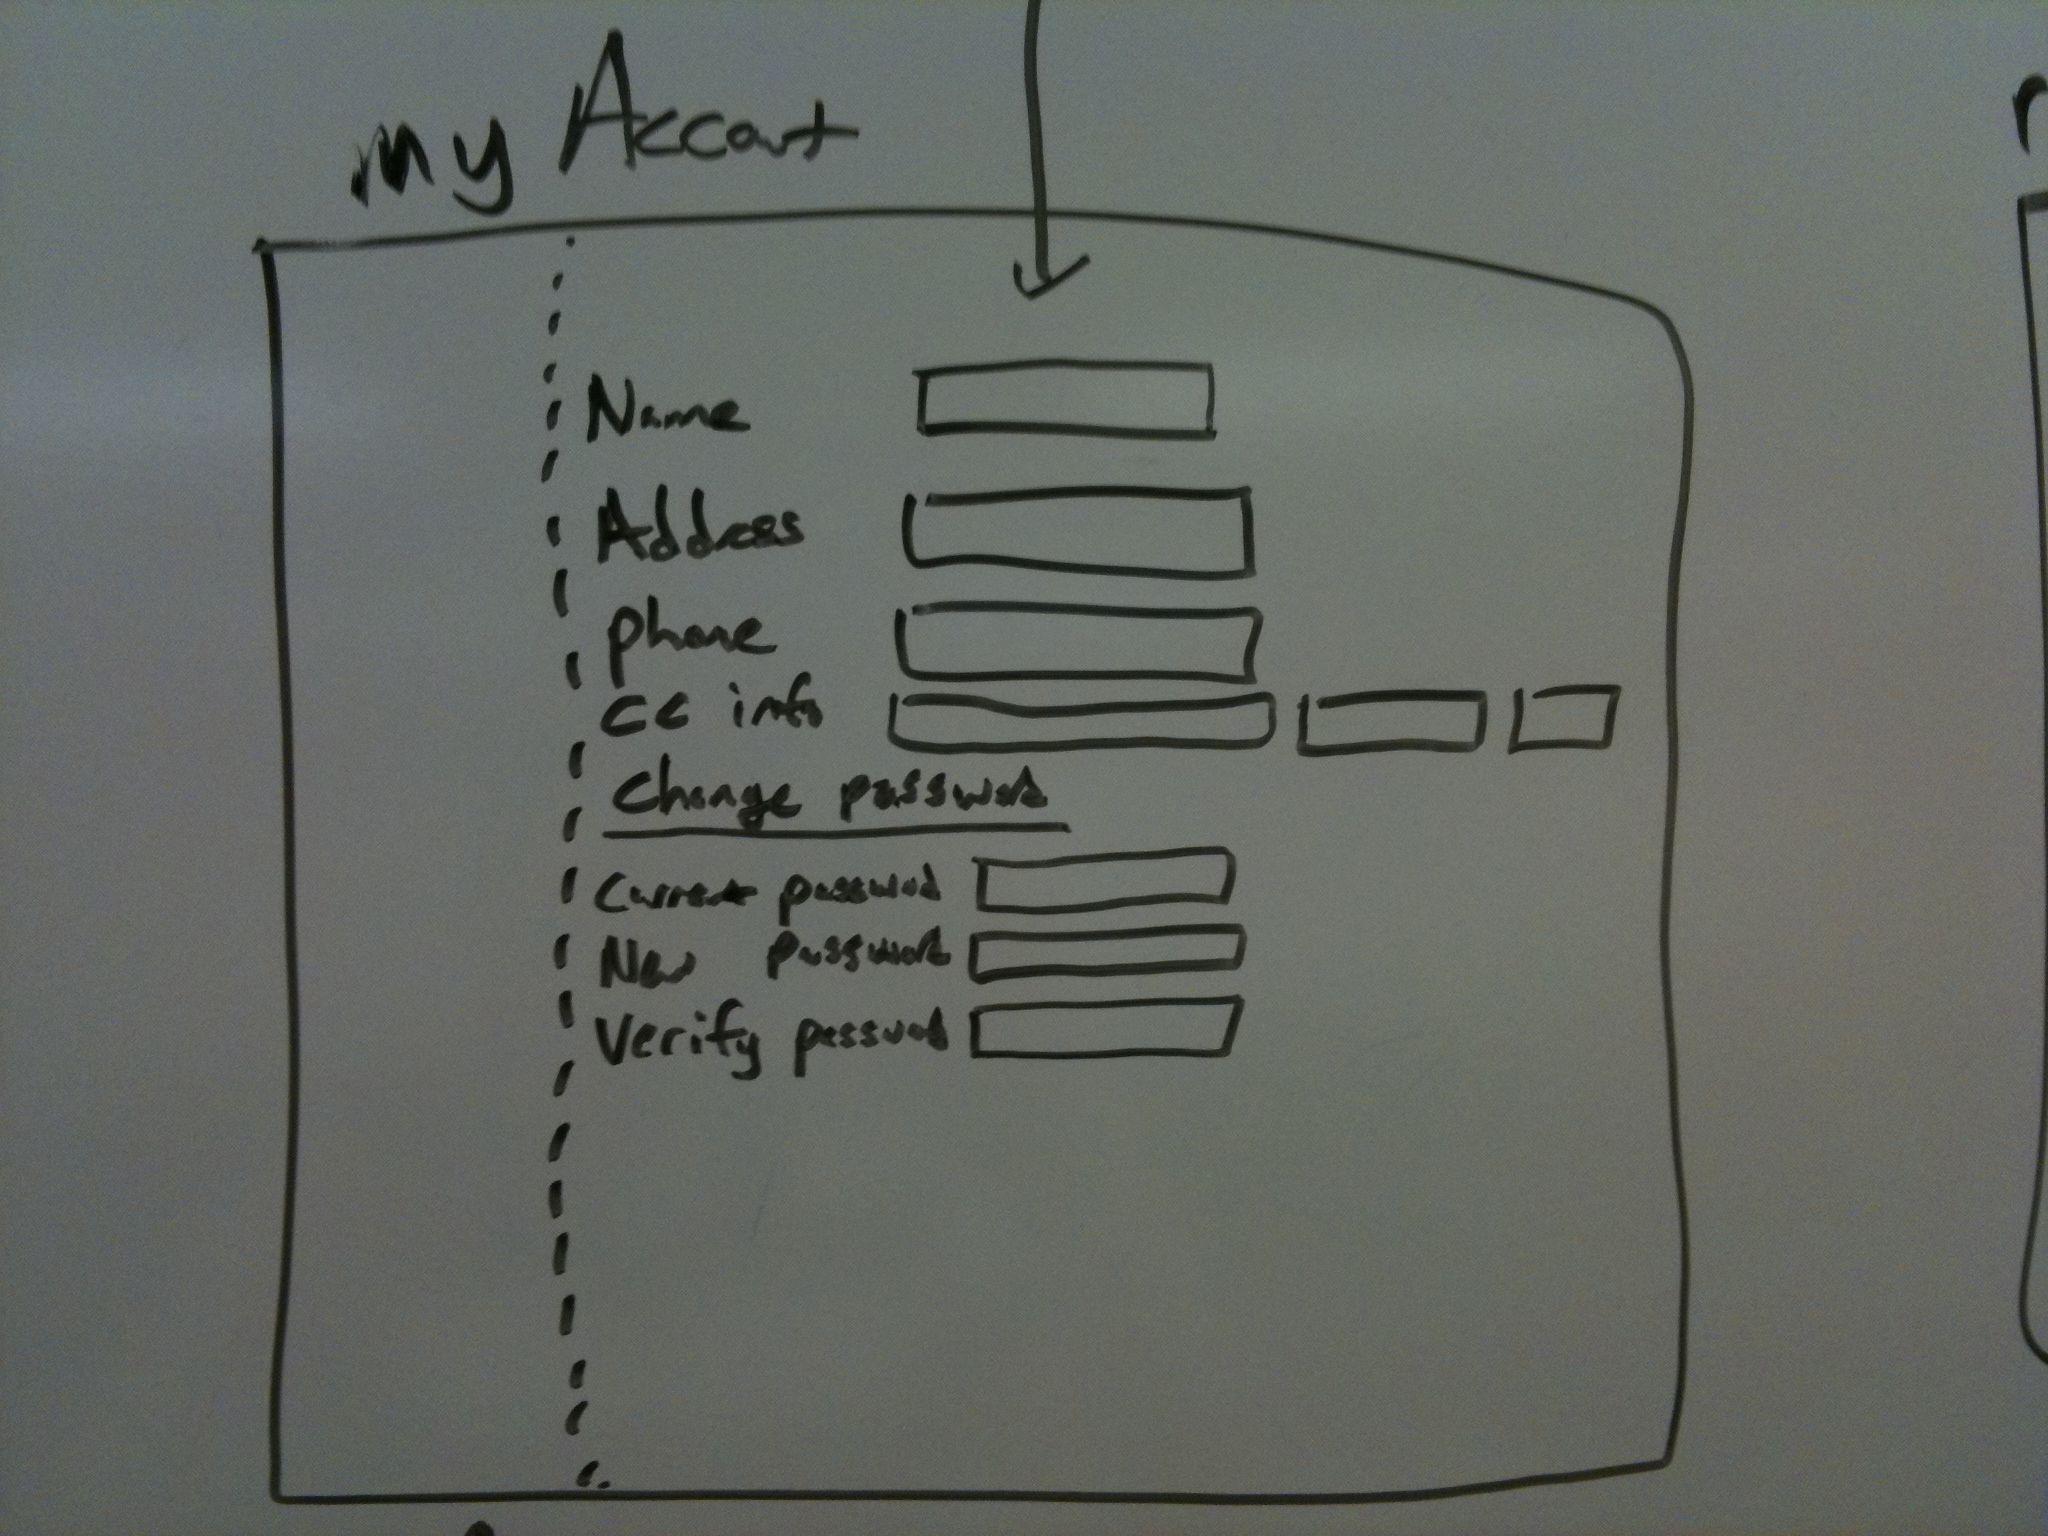 my Account
Name
Address
phone
CC info
Change password
Current password
New password
Verify password